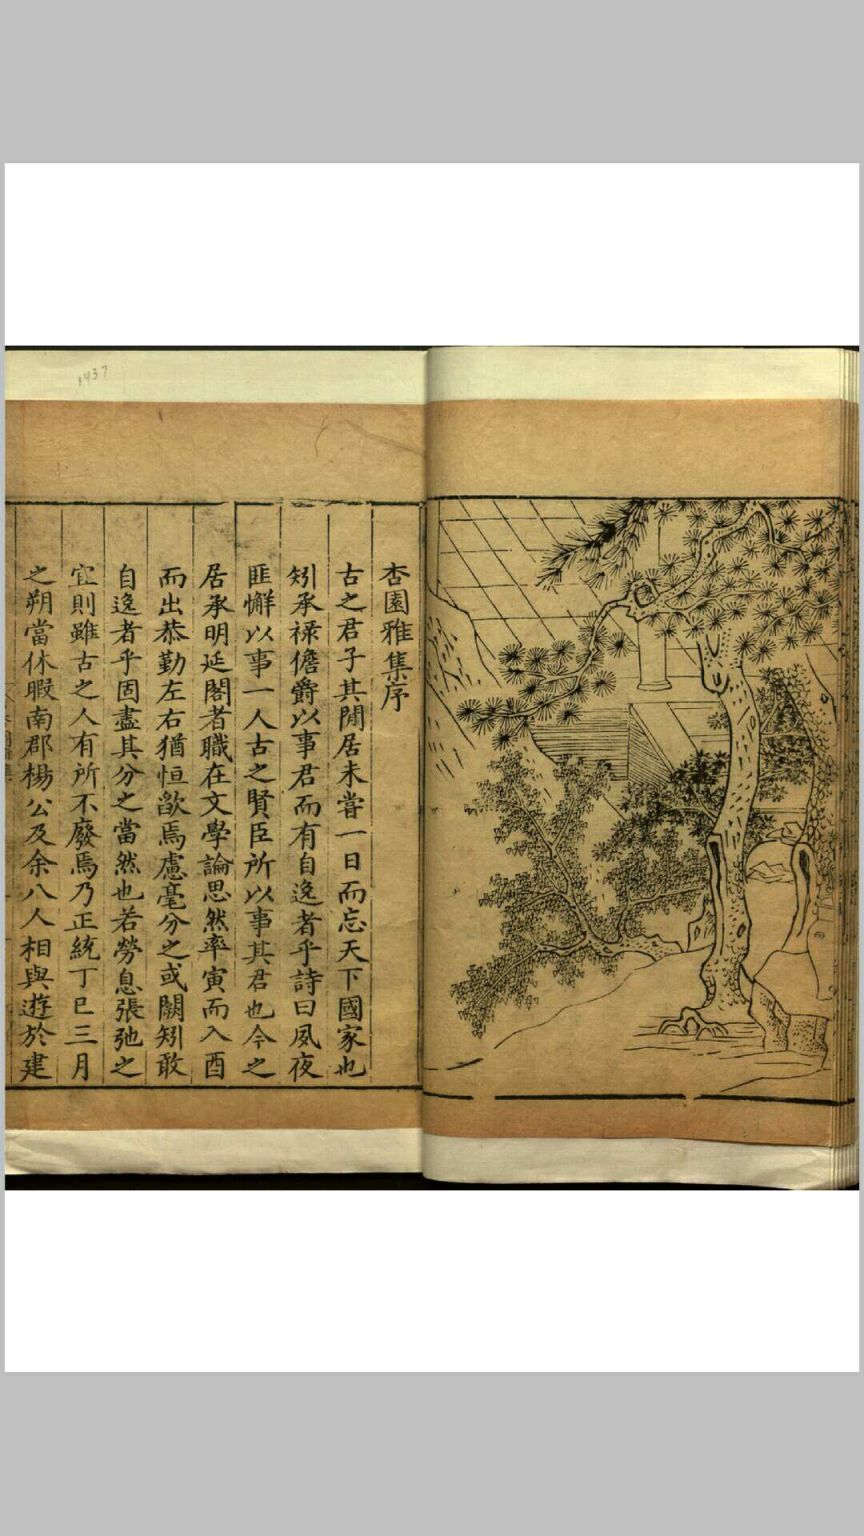 杏園雅集序
古之君子其閒居未嘗一日而忘天下國家也
矧承祿儋爵以事君而有自逸者乎詩曰夙夜
匪懈以事一人古之賢臣所以事其君也今之
居承明延閣者職在文學論思然率寅而入酉
而出恭勤左右猶恒歉焉慮毫分之或闕矧敢
自逸者乎固盡其分之當然也若勞息張弛之
宜則雖古之人有所不廢焉乃正統丁巳三月
之朔當休暇南郡楊公及余八人相與遊於建
1437